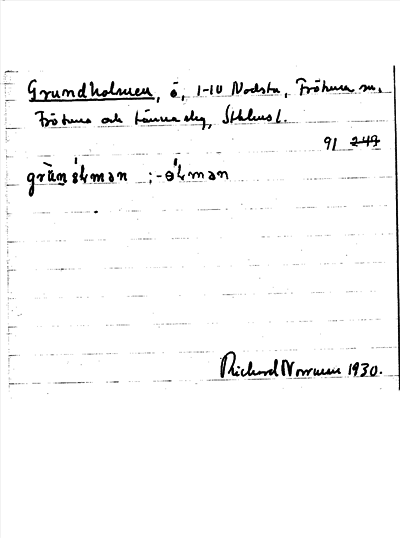 Grundholmen, ö, 1-10 Nodsta, Frötuna sn,
Frötuna och Länna slg, Sthlms l.
91 249
grùn ɵ̀ɫmən ; -ɵ́ɫmən
Richard Norrman 1930.